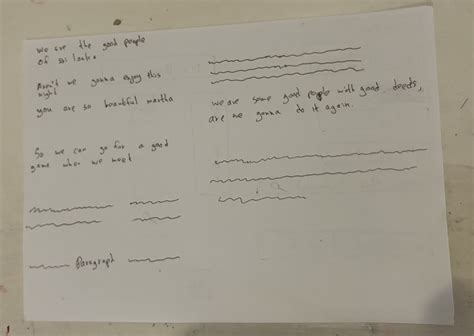 we are the good people
of sri lanka
Aren't we gonna enjoy this
night
you are so beautiful martha
So we can go for a good
game when we meet
Paragraph
we are some good people with good deeds,
are we gonna do it again.